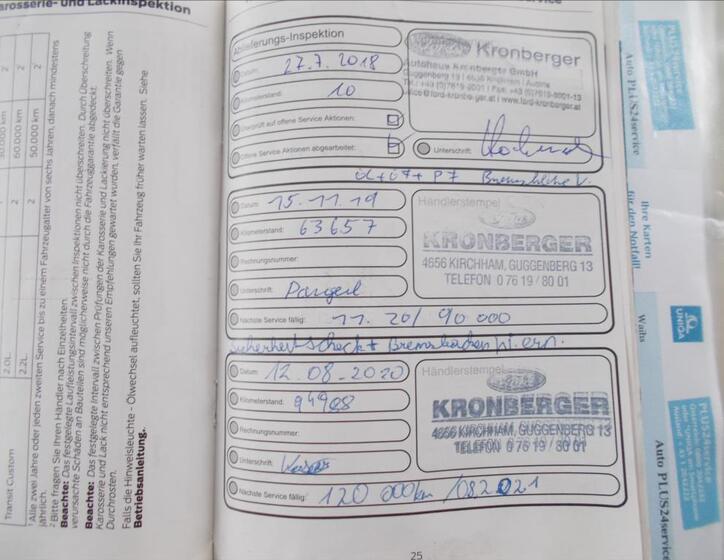 Karosserie- und Lackinspektion
Transit Custom
2.0L
2.2L
60.000 km
50.000 km
2
2
2
Alle zwei Jahre oder jeden zweiten Service bis zu einem Fahrzeugalter von sechs Jahren, danach mindestens
jährlich.
² Bitte fragen Sie Ihren Händler nach Einzelheiten.
Beachte: Das festgelegte Laufleistungsintervall zwischen Inspektionen nicht überschreiten. Durch Überschreitung
verursachte Schäden an Bauteilen sind möglicherweise nicht durch die Fahrzeuggarantie abgedeckt.
Beachte: Das festgelegte Intervall zwischen Prüfungen der Karosserie und Lackierung nicht überschreiten. Wenn
Karosserie und Lack nicht entsprechend unseren Empfehlungen gewartet wurden, verfällt die Garantie gegen
Durchrosten.
Falls die Hinweisleuchte - Ölwechsel aufleuchtet, sollten Sie Ihr Fahrzeug früher warten lassen. Siehe
Betriebsanleitung.
Ablieferungs-Inspektion
Datum: 27.7.2018
Kilometerstand: 10
Überprüft auf offene Service Aktionen:
Offene Service Aktionen abgearbeitet:
Kronberger
Autohaus Kronberger GmbH
Unterschrift:
Datum: 15.11.19
Kilometerstand: 63657
Rechnungsnummer:
Unterschrift:
Nächste Service fällig: 11.20/90000
Händlerstempel
KRONBERGER
4656 KIRCHHAM, GUGGENBERG 13
TELEFON 0 76 19 / 80 01
Datum: 12.08.2020
Kilometerstand: 94908
Rechnungsnummer:
Unterschrift:
Nächste Service fällig: 120 000km /08.2021
Händlerstempel
KRONBERGER
4656 KIRCHHAM, GUGGENBERG 13
TELEFON 0 76 19 / 80 01
25
PLUS24service
Auto PLUS24service
Ihre Karten
für den Notfall!
UNIQA
PLUS24service
Auto PLUS24service